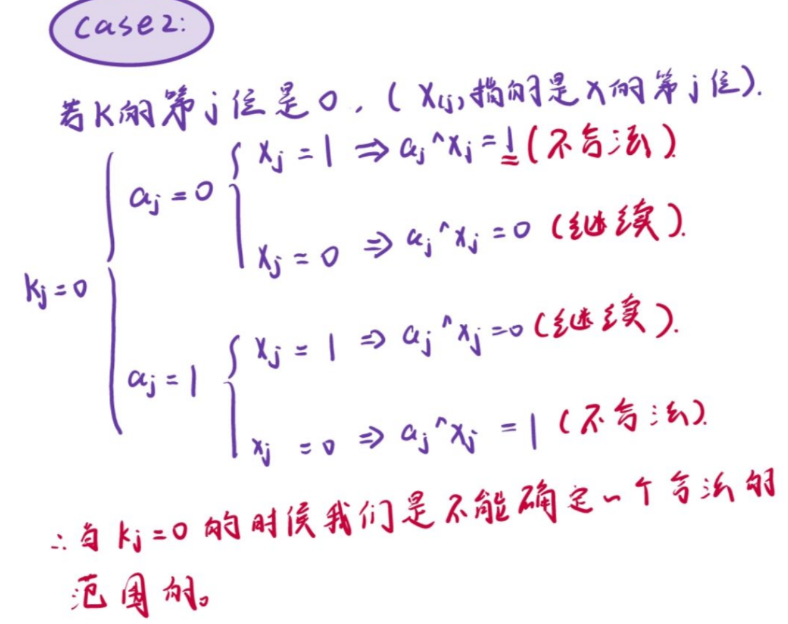 case2:
若K的第j位是0，( X(j)指的是X的第j位).
kj=0
aj=0
xj=1 ⇒ aj^xj=1 (不合法)
xj=0 ⇒ aj^xj=0 (继续).
aj=1
xj=1 ⇒ aj^xj=0 (继续).
xj=0 ⇒ aj^xj=1 (不合法)
∴当kj=0的时候我们是不能确定一个合法的
范围的。